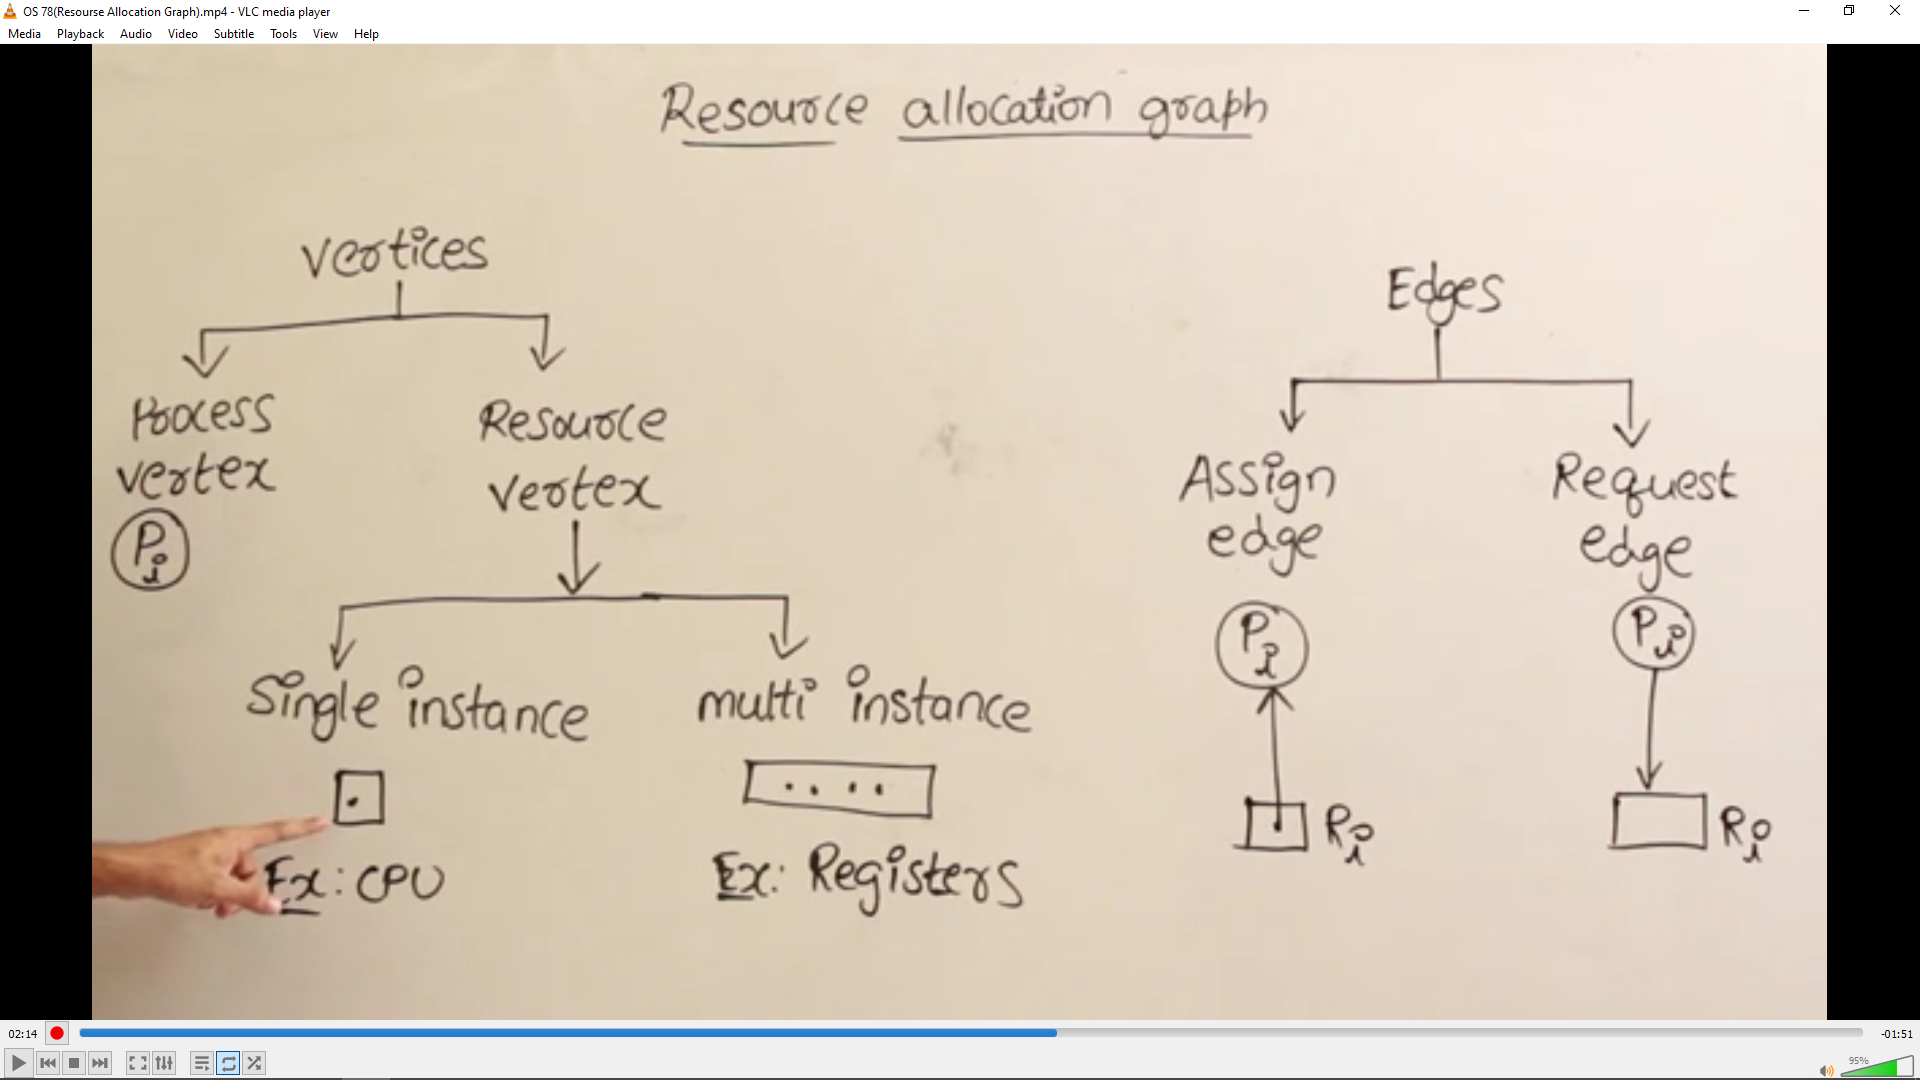 OS 78(Resourse Allocation Graph).mp4 - VLC media player
Media Playback Audio Video Subtitle Tools View Help
Resource allocation graph
Vertices
Process
vertex
Pi
Resource
vertex
Single instance
Ex: CPU
multi instance
Ex: Registers
Edges
Assign
edge
Pi
Ri
Request
edge
Pi
Ri
02:14
-01:51
95%